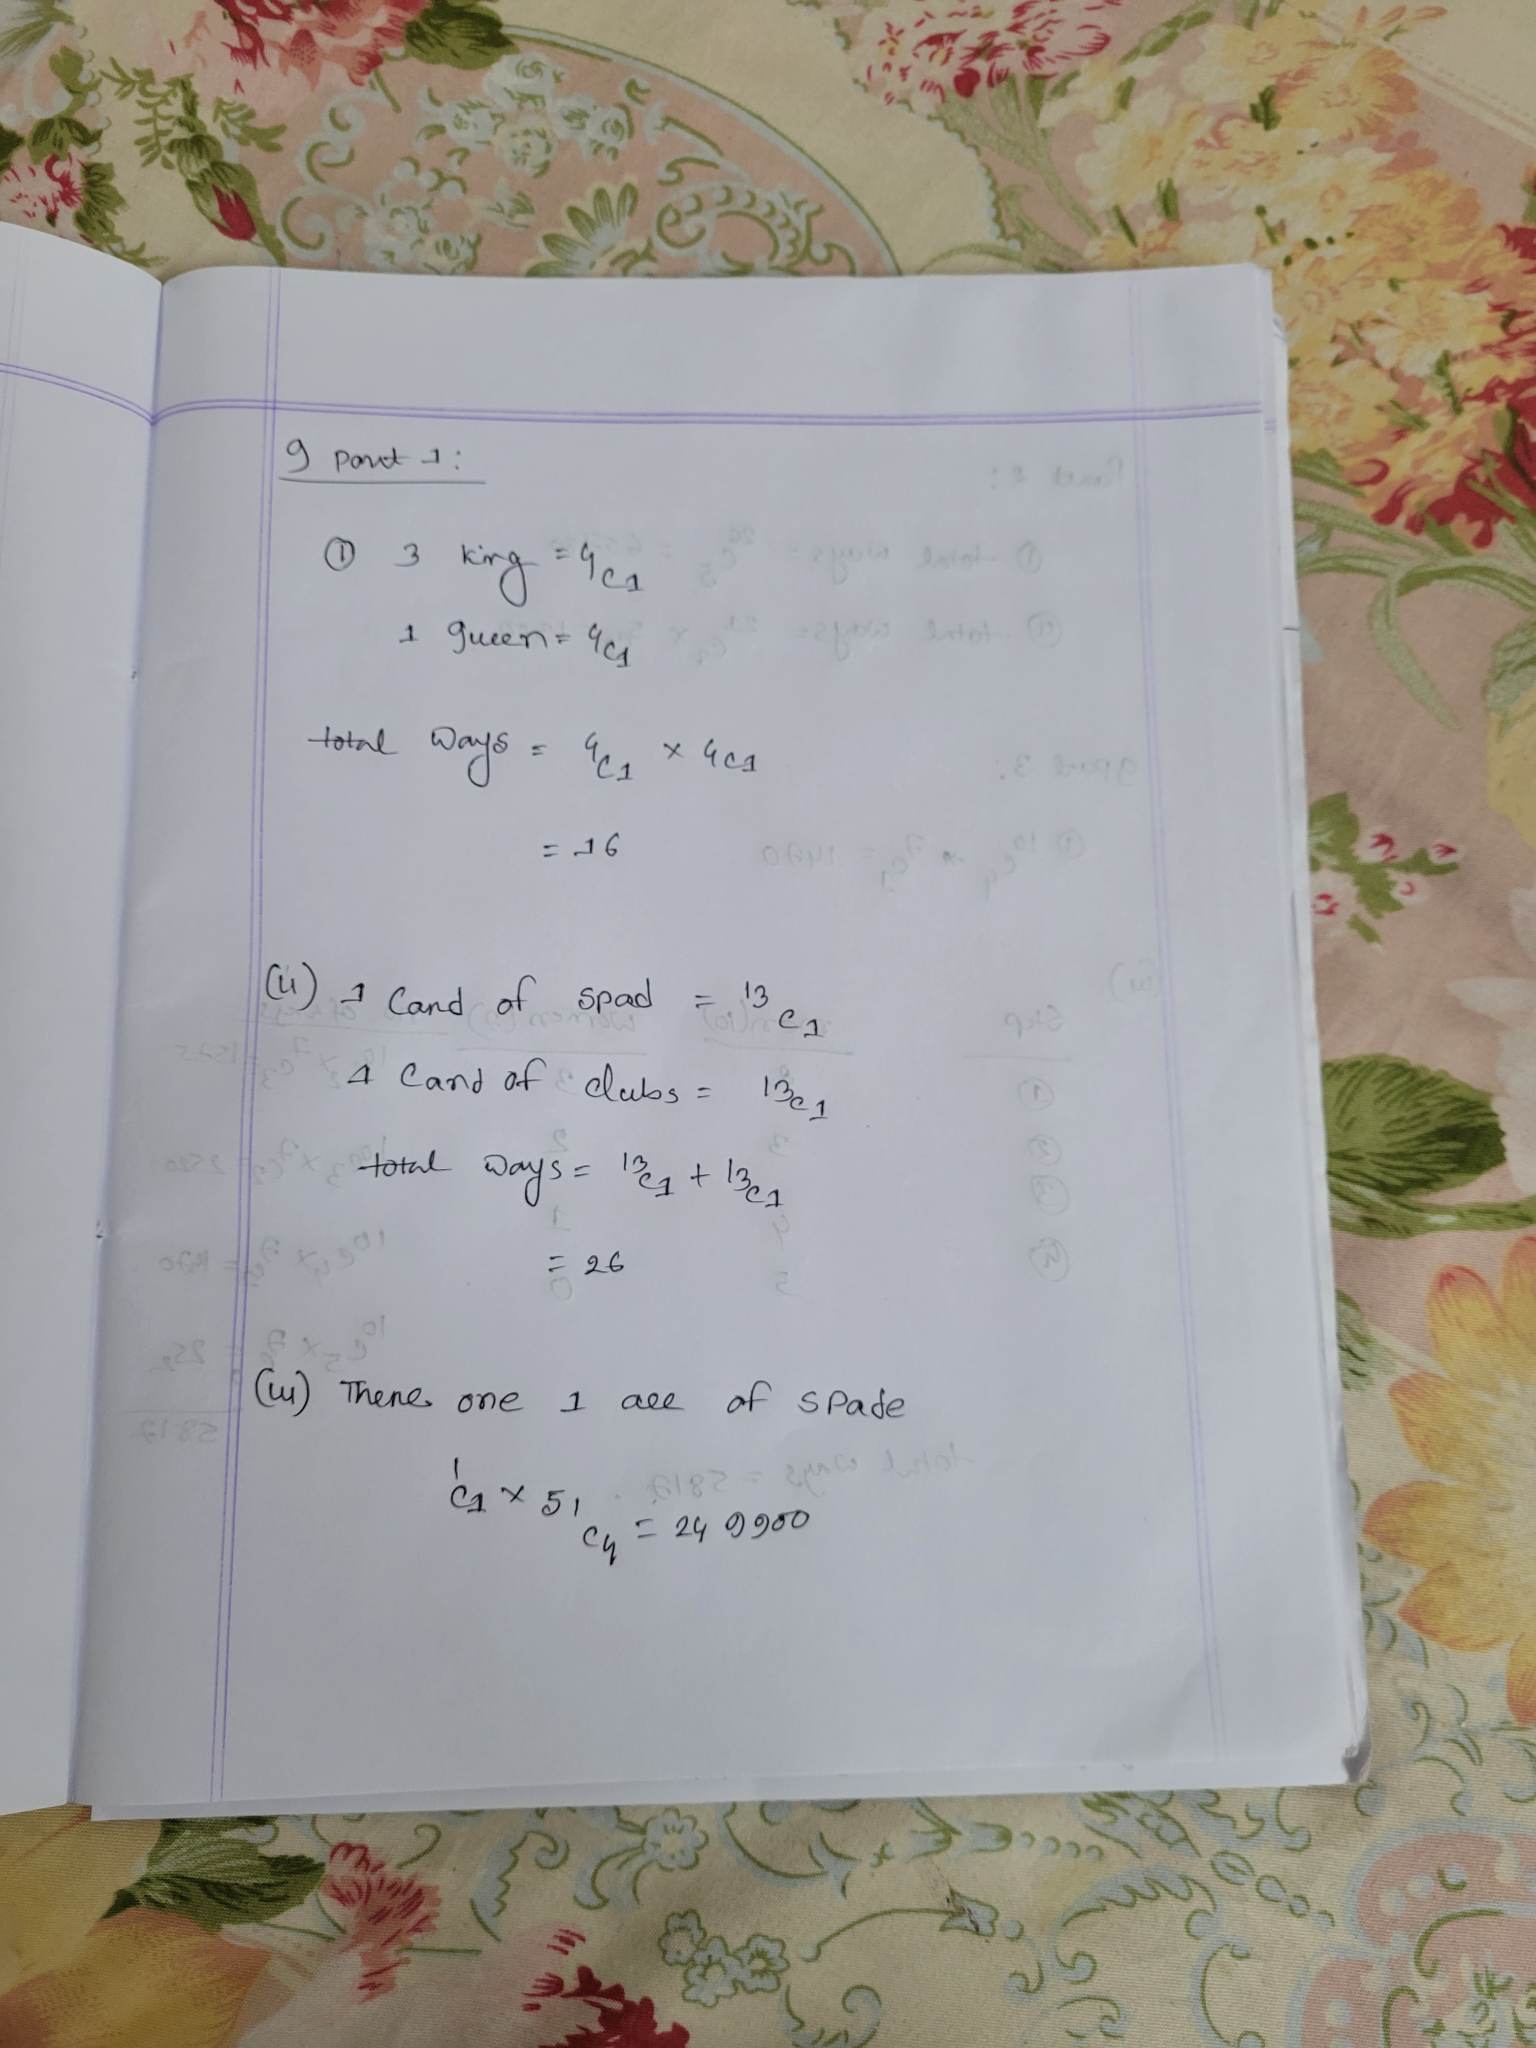 9 Part 1:
① 3 king = 4c1
1 queen = 4c1
total ways = 4c1 × 4c1
= 16
(ii) 1 Card of spad = 13c1
1 Card of clubs = 13c1
total ways = 13c1 + 13c1
= 26
(iii) There one 1 ace of spade
1c1 × 51c4 = 249900